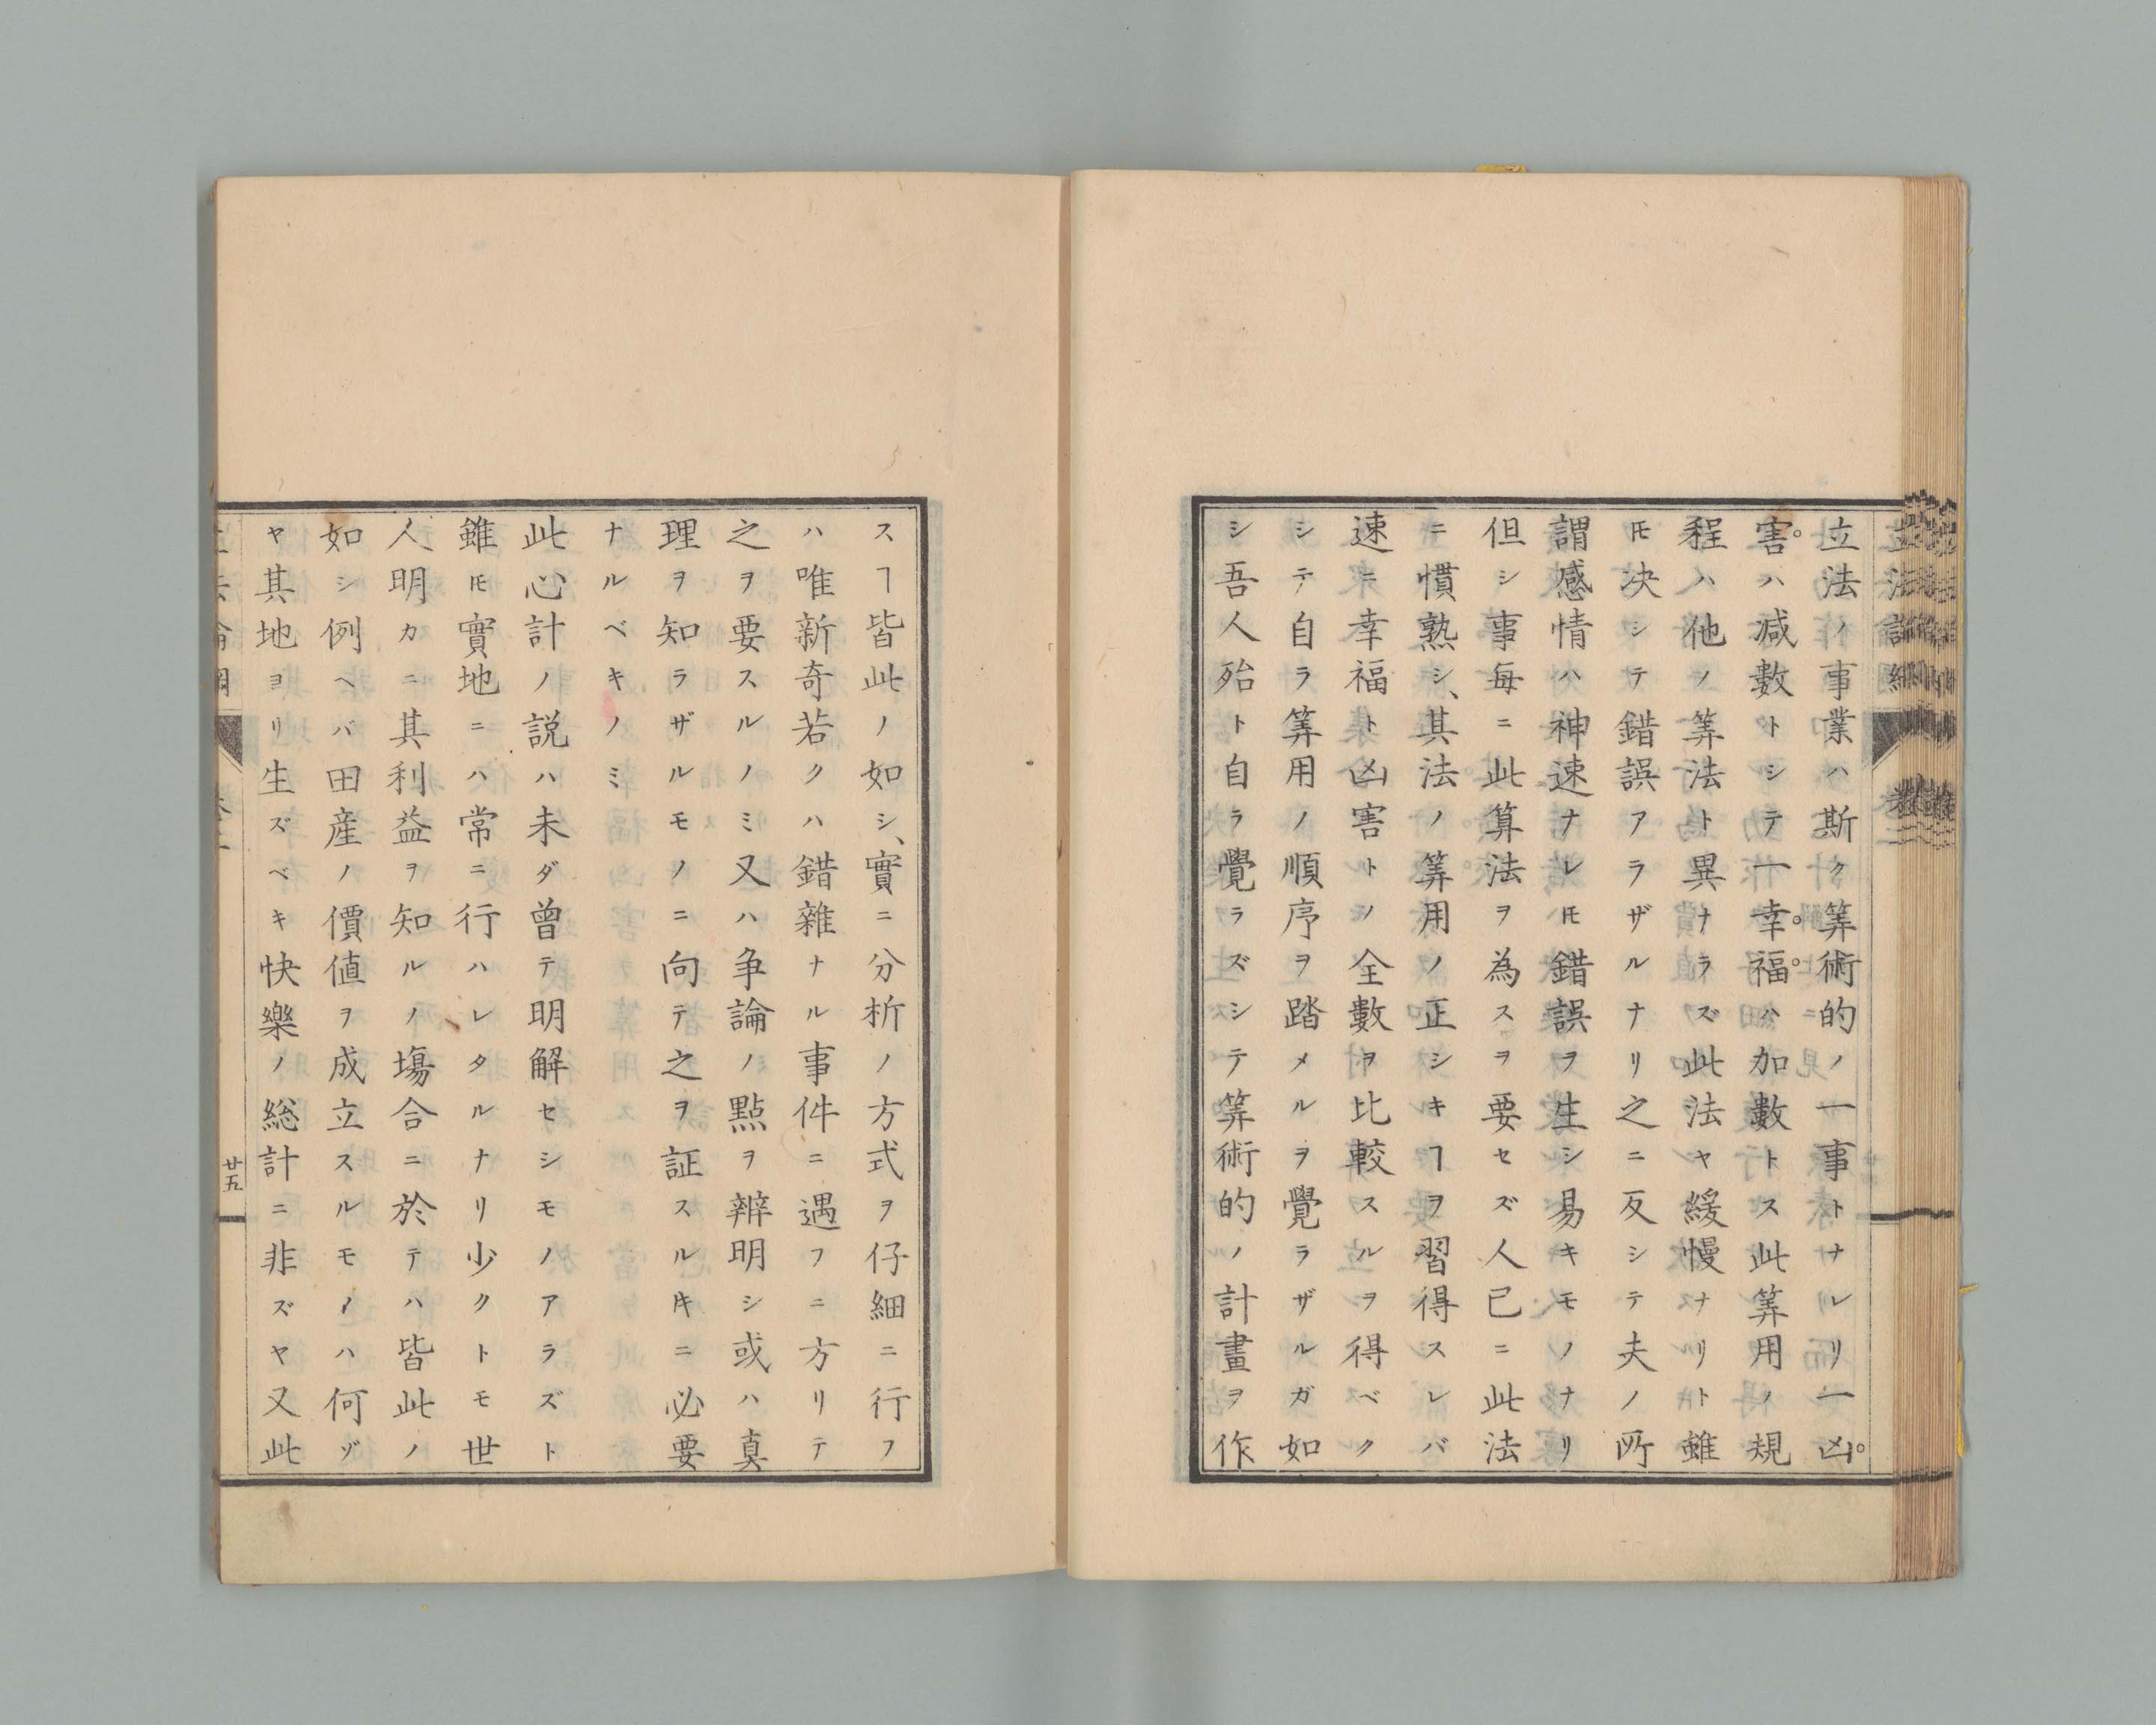 立法ノ事業ハ斯ク筭術的ノ一事トナレリ一凶
害ハ減數トシテ一幸福ハ加數トス此筭用ノ規
程ハ他ノ筭法ト異ナラズ此法ヤ緩慢ナリト雖
𪜈决シテ錯誤アラザルナリ之ニ反シテ夫ノ所
謂感情ハ神速ナレ𪜈錯誤ヲ生シ易キモノナリ
但シ事每ニ此算法ヲ為スヲ要セズ人已ニ此法
ニ慣熟シ、其法ノ筭用ノ正シキヿヲ習得スレバ
速ニ幸福ト凶害トノ全數ヲ比較スルヲ得ベク
シテ自ラ筭用ノ順序ヲ踏メルヲ覺ラザルガ如
シ吾人殆ト自ラ覺ラズシテ筭術的ノ計畫ヲ作
スヿ皆此ノ如シ、實ニ分析ノ方式ヲ仔細ニ行フ
ハ唯新奇若クハ錯雜ナル事件ニ遇フニ方リテ
之ヲ要スルノミ又ハ争論ノ點ヲ辨明シ或ハ真
理ヲ知ラザルモノニ向テ之ヲ証スル𪜈ニ必要
ナルベキノミ
此心計ノ説ハ未ダ曾テ明解セシモノアラズト
雖𪜈實地ニハ常ニ行ハレタルナリ少クトモ世
人明カニ其利益ヲ知ルノ塲合ニ於テハ皆此ノ
如シ例ヘバ田産ノ價値ヲ成立スルモノハ何ゾ
ヤ其地ヨリ生ズベキ快樂ノ総計ニ非ズヤ又此
廿五